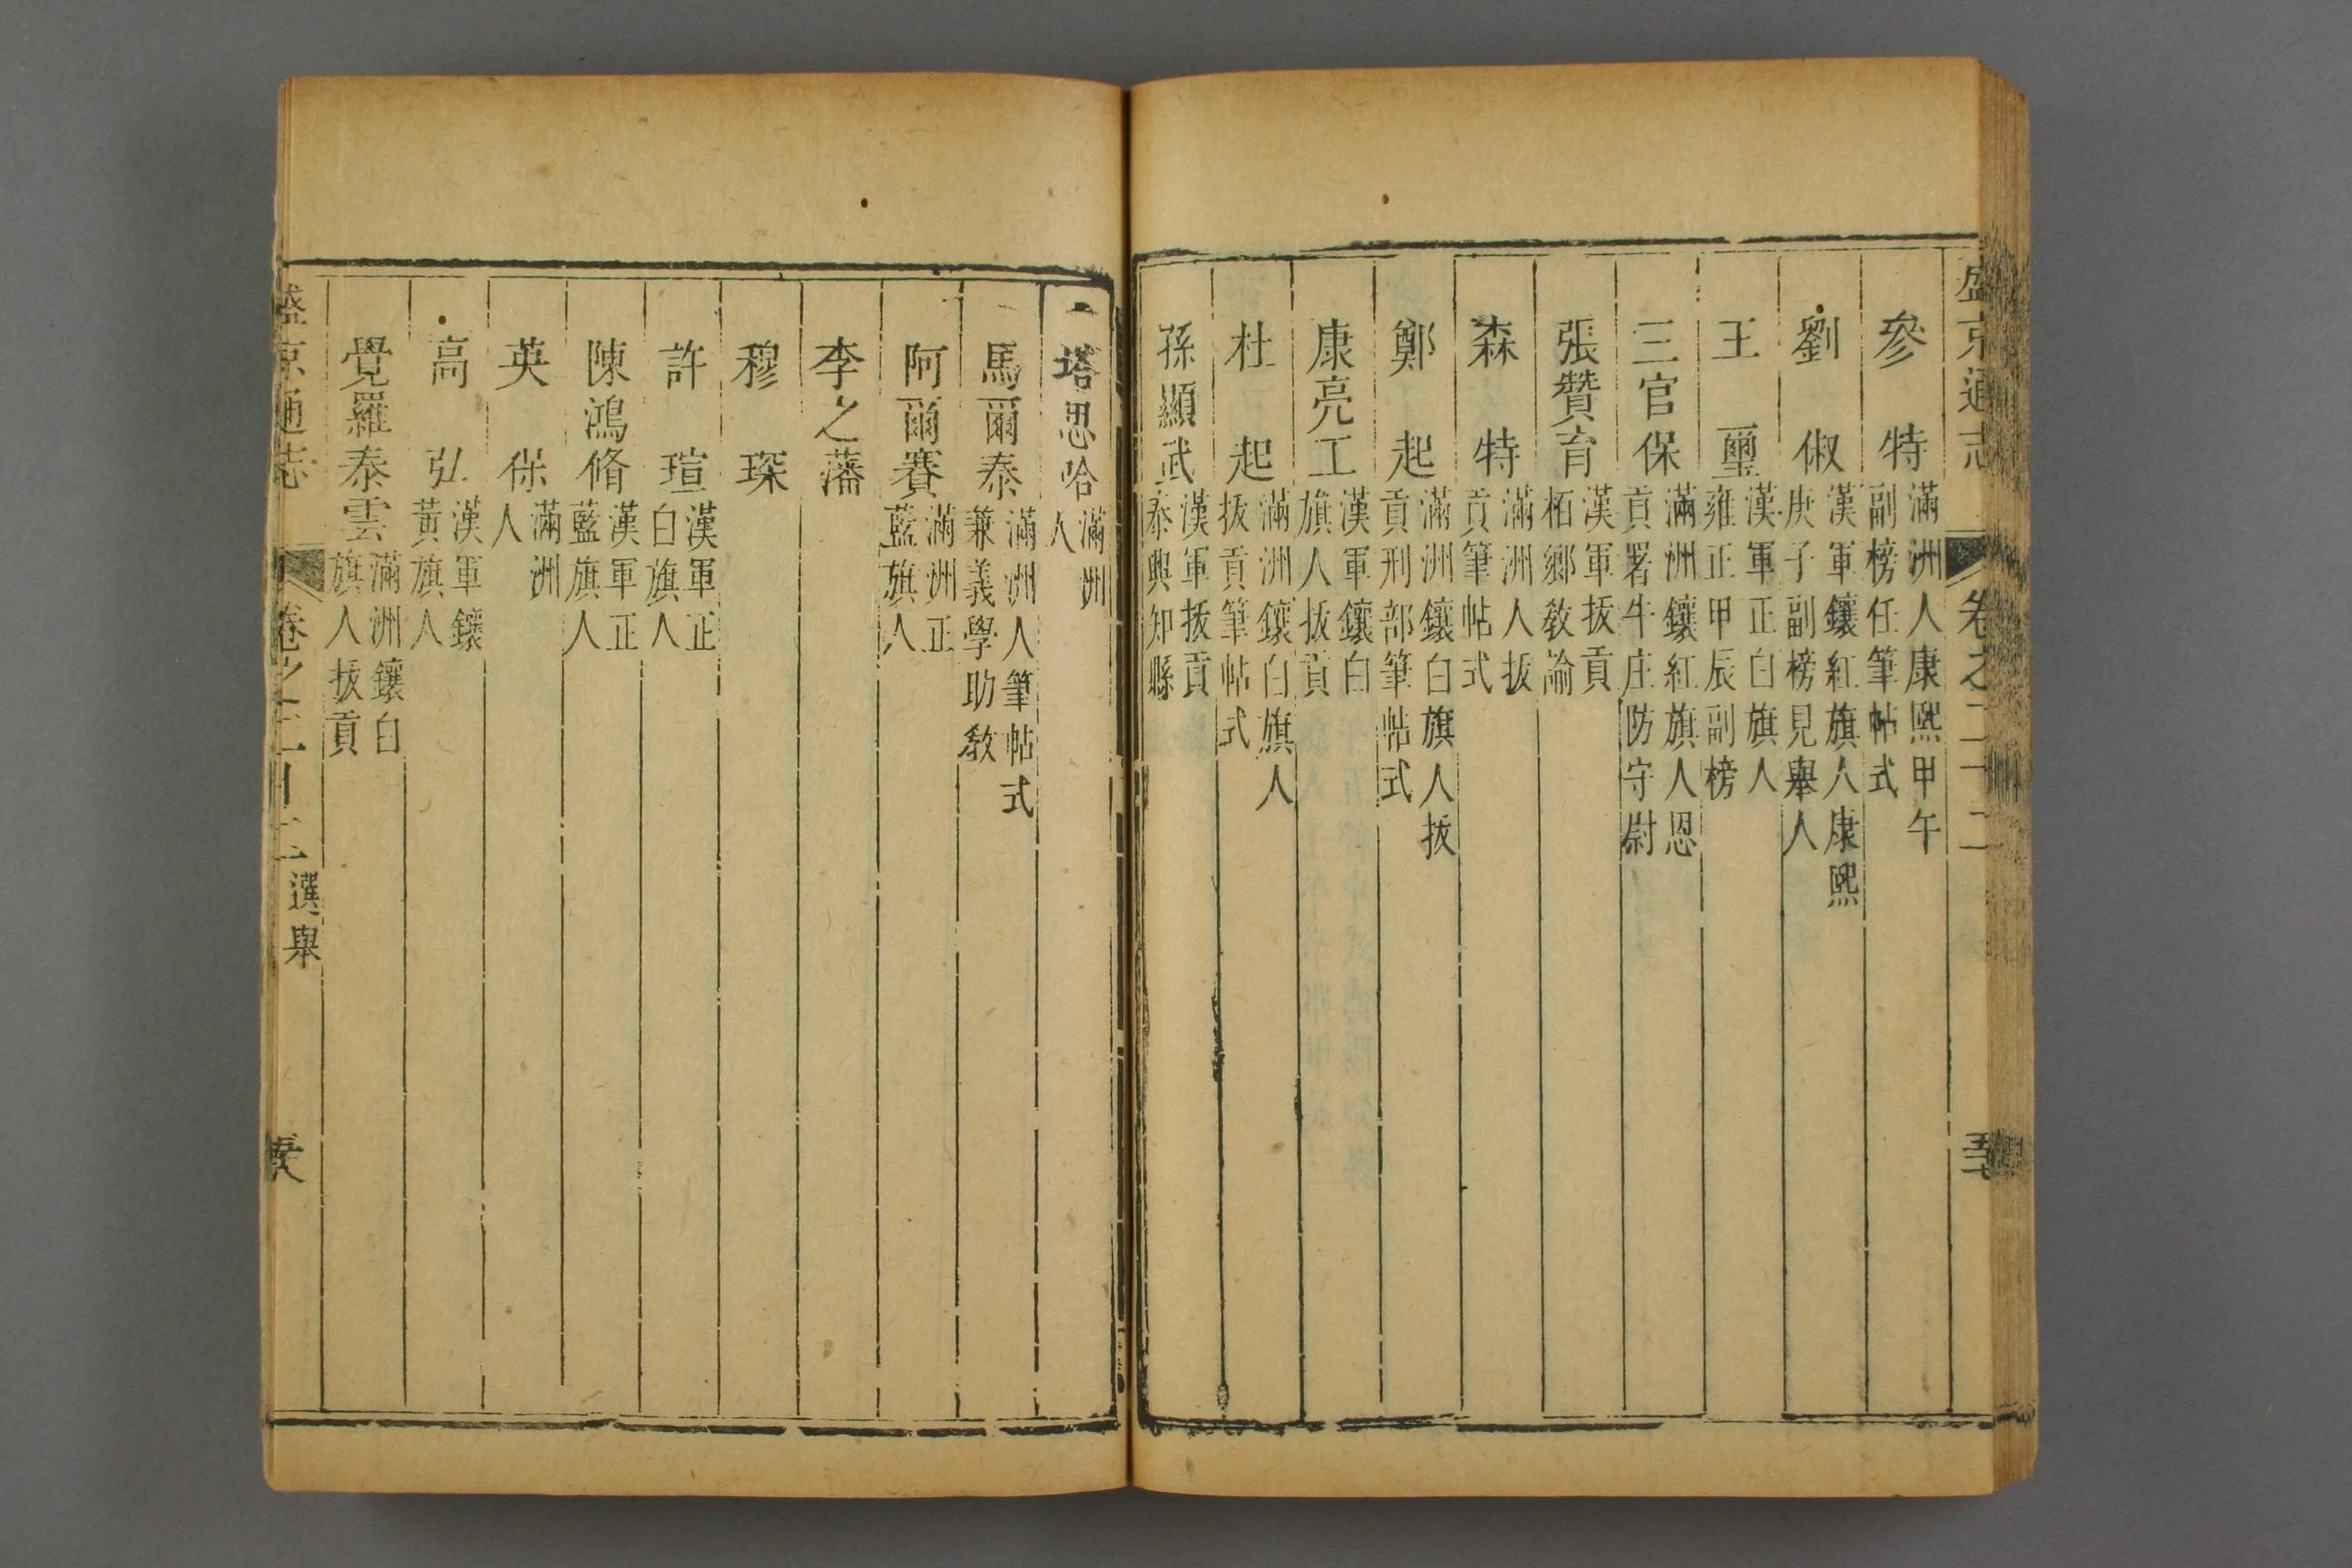 盛京通志 卷之二十二
參特 滿洲人康熙甲午副榜任筆帖式
劉俶 漢軍鑲紅旗人康熙庚子副榜見舉人
王璽 漢軍正白旗人雍正甲辰副榜
三官保 滿洲鑲紅旗人恩貢署牛庄防守尉
張贊育 漢軍拔貢栢鄉敎諭
森特 滿洲人拔貢筆帖式
鄭起 滿洲鑲白旗人拔貢刑部筆帖式
康亮工 漢軍鑲白旗人拔貢
杜起 滿洲鑲白旗人拔貢筆帖式
孫顯武 漢軍拔貢泰興知縣
塔思哈 滿洲人
馬爾泰 滿洲人筆帖式兼義學助敎
阿爾賽 滿洲正藍旗人
李之藩
穆琛
許瑄 漢軍正白旗人
陳鴻脩 漢軍正藍旗人
英保 滿洲人
高弘 漢軍鑲黃旗人
覺羅泰雲 滿洲鑲白旗人拔貢
盛京通志 卷之二十二 選舉